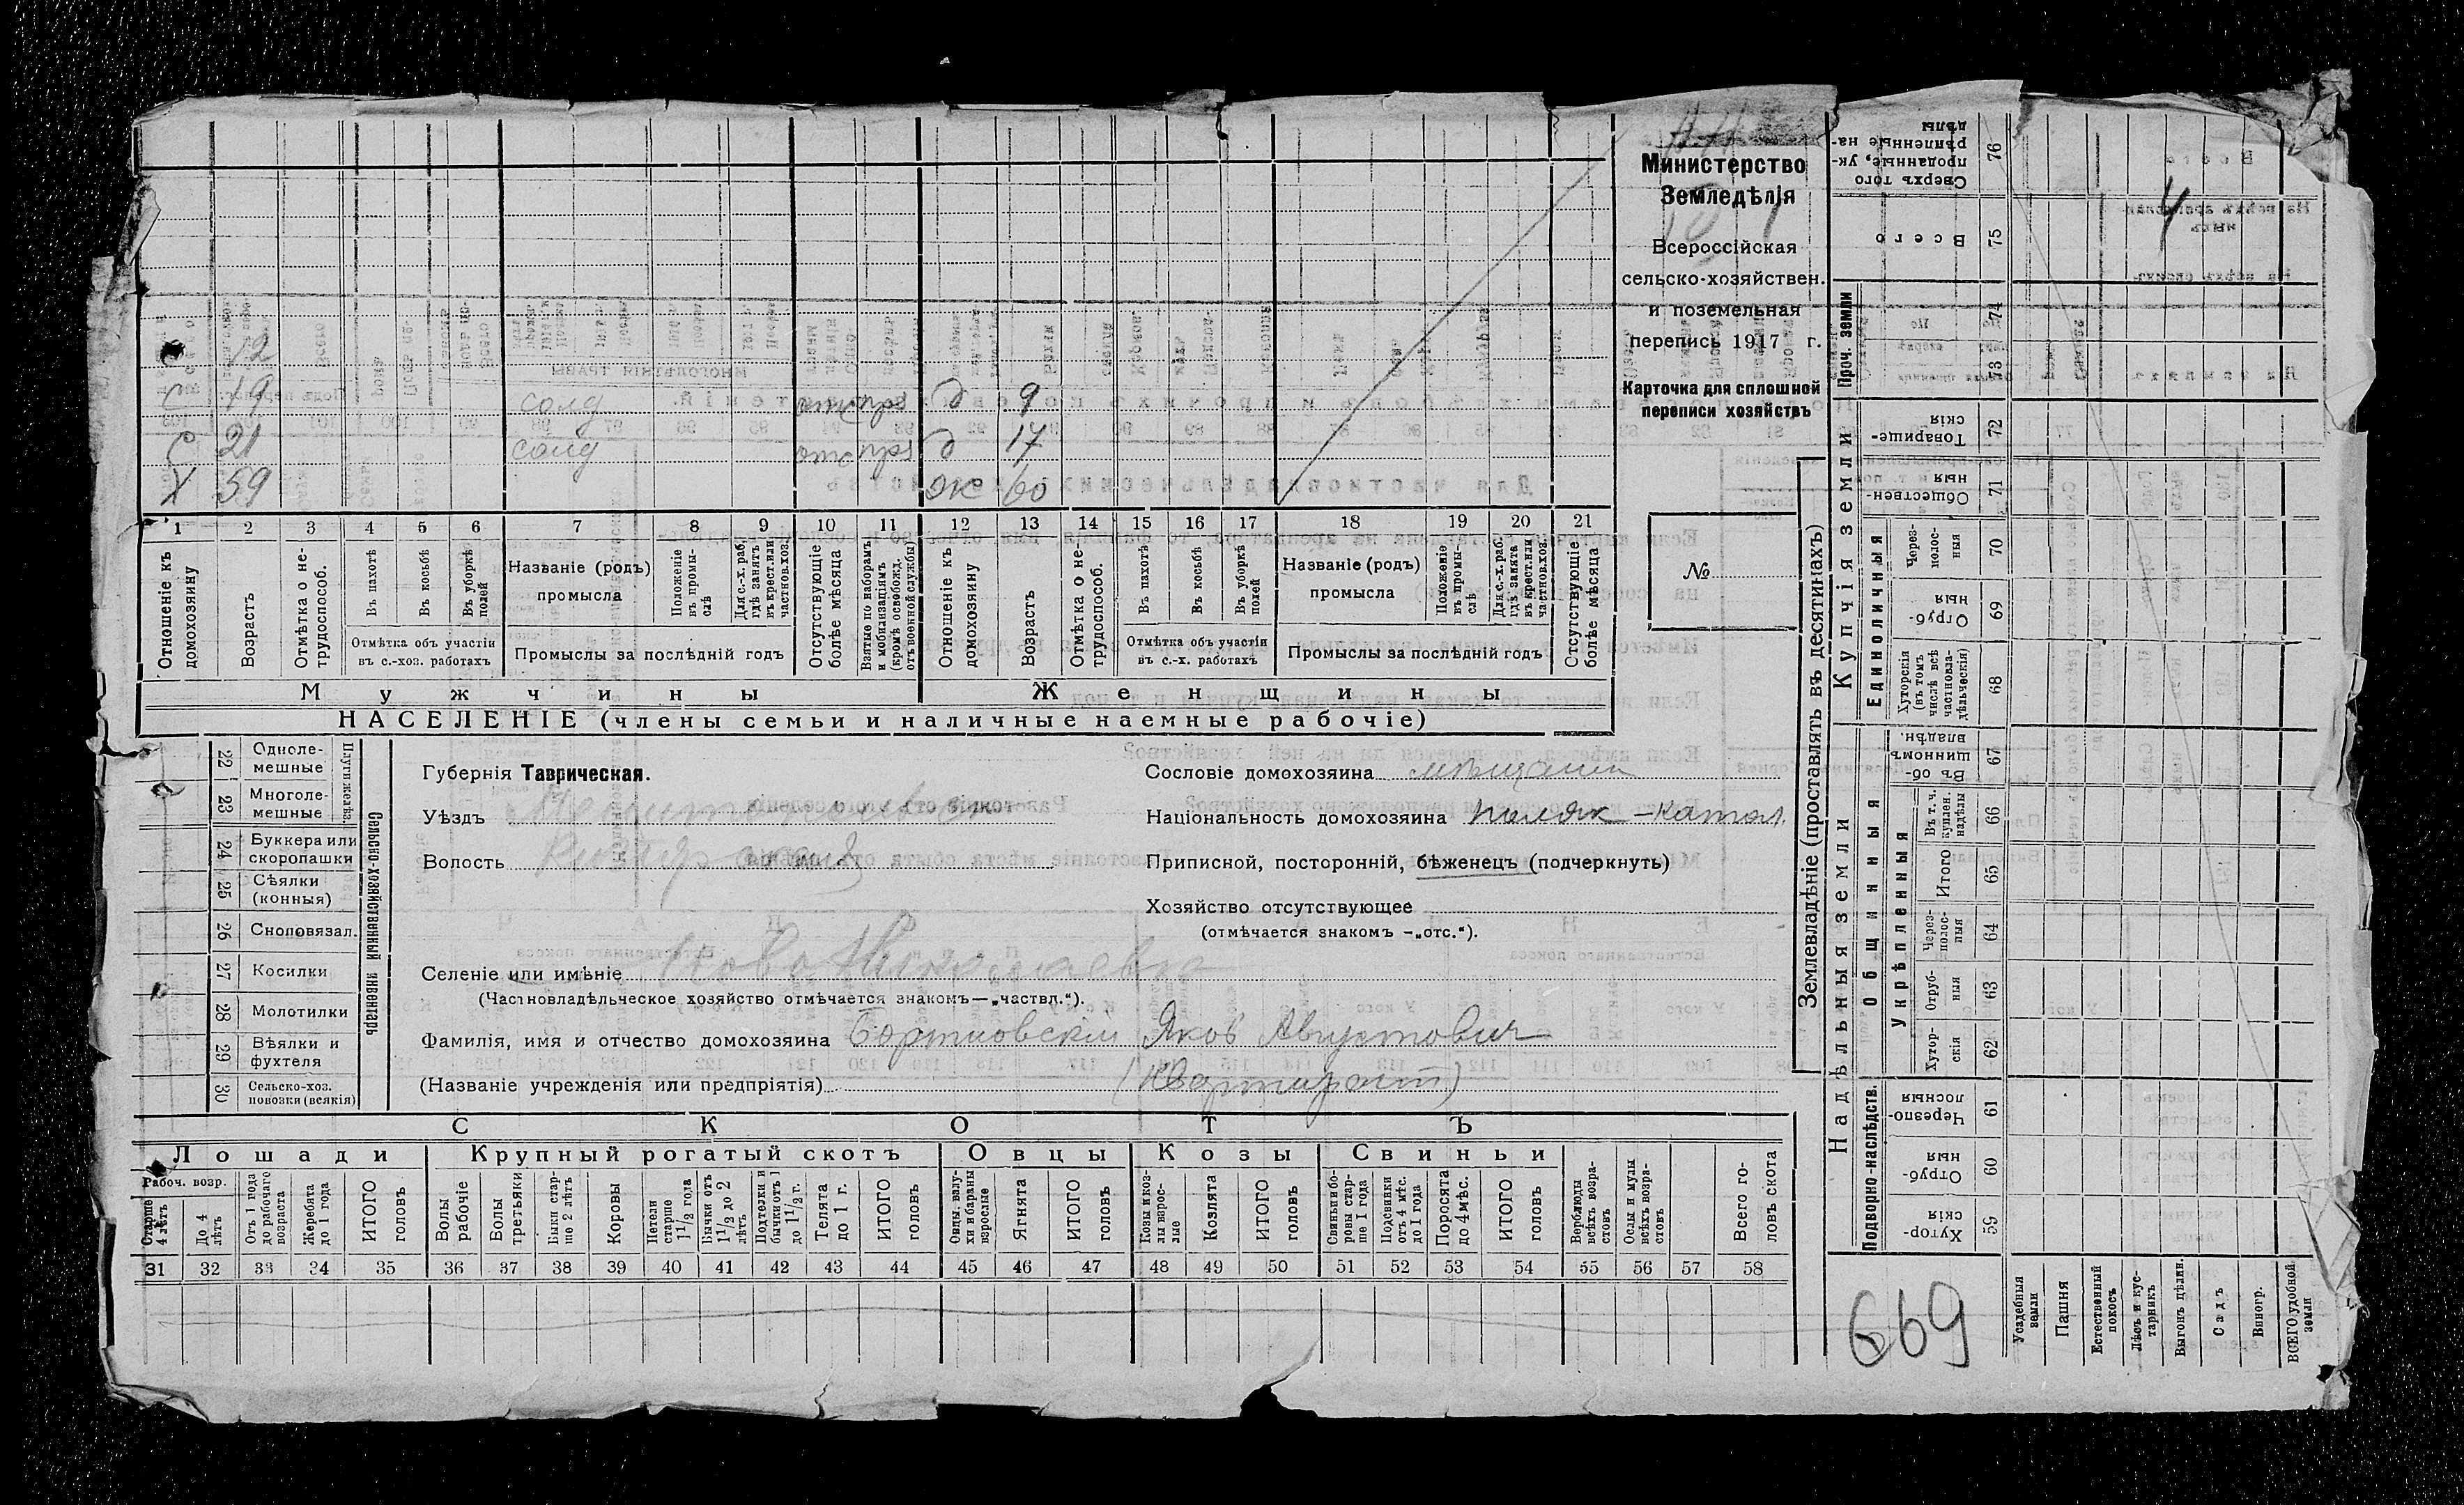 Министерство
Земледѣлія
Всероссійская
сельско-хозяйствен.
и поземельная
перепись 1917 г.
Карточка для сплошной
переписи хозяйствъ
№
12
С 19 солд отс пр8 д 9
С 21 солд отс пр8 д 17
Х 59 ж 60
1 2 3 4 5 6 7 8 9 10 11 12 13 14 15 16 17 18 19 20 21
Отношеніе къ домохозяину
Возрастъ
Отмѣтка о нетрудоспособ.
Въ пахотѣ
Въ косьбѣ
Въ уборкѣ полей
Отмѣтка объ участіи
въ с.-хоз. работахъ
Названіе (родъ)
промысла
Положеніе въ промыслѣ
Для с.-х. раб. гдѣ занятъ въ крест. или частнов. хоз.
Промыслы за послѣдній годъ
Отсутствующіе болѣе мѣсяца
Взятые по наборамъ и мобилизаціямъ (кромѣ освобожд. отъ военной службы)
Отношеніе къ домохозяину
Возрастъ
Отмѣтка о нетрудоспособ.
Въ пахотѣ
Въ косьбѣ
Въ уборкѣ полей
Отмѣтка объ участіи
въ с.-х. работахъ
Названіе (родъ)
промысла
Положеніе въ промыслѣ
Для с.-х. раб. гдѣ занята въ крест. или частнов. хоз.
Промыслы за послѣдній годъ
Отсутствующіе болѣе мѣсяца
Мужчины Женщины
НАСЕЛЕНІЕ (члены семьи и наличные наемные рабочіе)
Сельско-хозяйственный инвентарь
Плуги желѣз.
22 Однолемешные
23 Многолемешные
24 Буккера или скоропашки
25 Сѣялки (конныя)
26 Сноповязал.
27 Косилки
28 Молотилки
29 Вѣялки и фухтеля
30 Сельско-хоз. повозки (всякія)
Губернія Таврическая.
Уѣздъ Мелитопольск
Волость
Селеніе или имѣніе Ново Николаевка
(Частновладѣльческое хозяйство отмѣчается знакомъ—„частвл.“).
Фамилія, имя и отчество домохозяина Бортновскій Яков Августович
(Названіе учрежденія или предпріятія) (Квартирант)
Сословіе домохозяина мѣщанин
Національность домохозяина поляк – катол.
Приписной, посторонній, бѣженецъ (подчеркнуть)
Хозяйство отсутствующее
(отмѣчается знакомъ –„отс.“).
СКОТЪ
Лошади Крупный рогатый скотъ Овцы Козы Свиньи
Рабоч. возр.
Старше 4 лѣтъ
До 4 лѣтъ
Отъ 1 года до рабочаго возраста
Жеребята до 1 года
ИТОГО головъ
Волы рабочіе
Волы третьяки
Быки старше 2 лѣтъ
Коровы
Нетели старше 1½ года
Бычки отъ 1½ до 2 лѣтъ
Подтелки и бычки отъ 1 до 1½ г.
Телята до 1 г.
ИТОГО головъ
Овцы, валухи и бараны взрослые
Ягнята
ИТОГО головъ
Козы и козлы взрослые
Козлята
ИТОГО головъ
Свиньи и боровы старше 1 года
Подсвинки отъ 4 мѣс. до 1 года
Поросята до 4 мѣс.
ИТОГО головъ
Верблюды всѣхъ возрастовъ
Ослы и мулы всѣхъ возрастовъ
Всего головъ скота
31 32 33 34 35 36 37 38 39 40 41 42 43 44 45 46 47 48 49 50 51 52 53 54 55 56 57 58
Землевладѣніе (проставлять въ десятинахъ)
Надѣльныя земли
Купчія земли
Проч. земли
Подворно-наслѣдств.
Общинныя
Укрѣпленныя
Единоличныя
Сверхъ того проданные, укрѣпленные надѣлы 76
Всего 75
74
73
Товарищескія 72
Общественныя 71
Черезполосныя 70
Отрубныя 69
Хуторскія (въ томъ числѣ всѣ частновладѣльческія) 68
Въ общинномъ владѣн. 67
Въ т. ч. куплен. надѣлы 66
Итого 65
Черезполосныя 64
Отрубныя 63
Хуторскія 62
Черезполосныя 61
Отрубныя 60
Хуторскія 59
4
669
Усадебныя земли
Пашня
Естественный покосъ
Лѣсъ и кустарникъ
Выгонъ цѣлин.
Садъ
Виногр.
ВСЕГО удобной земли